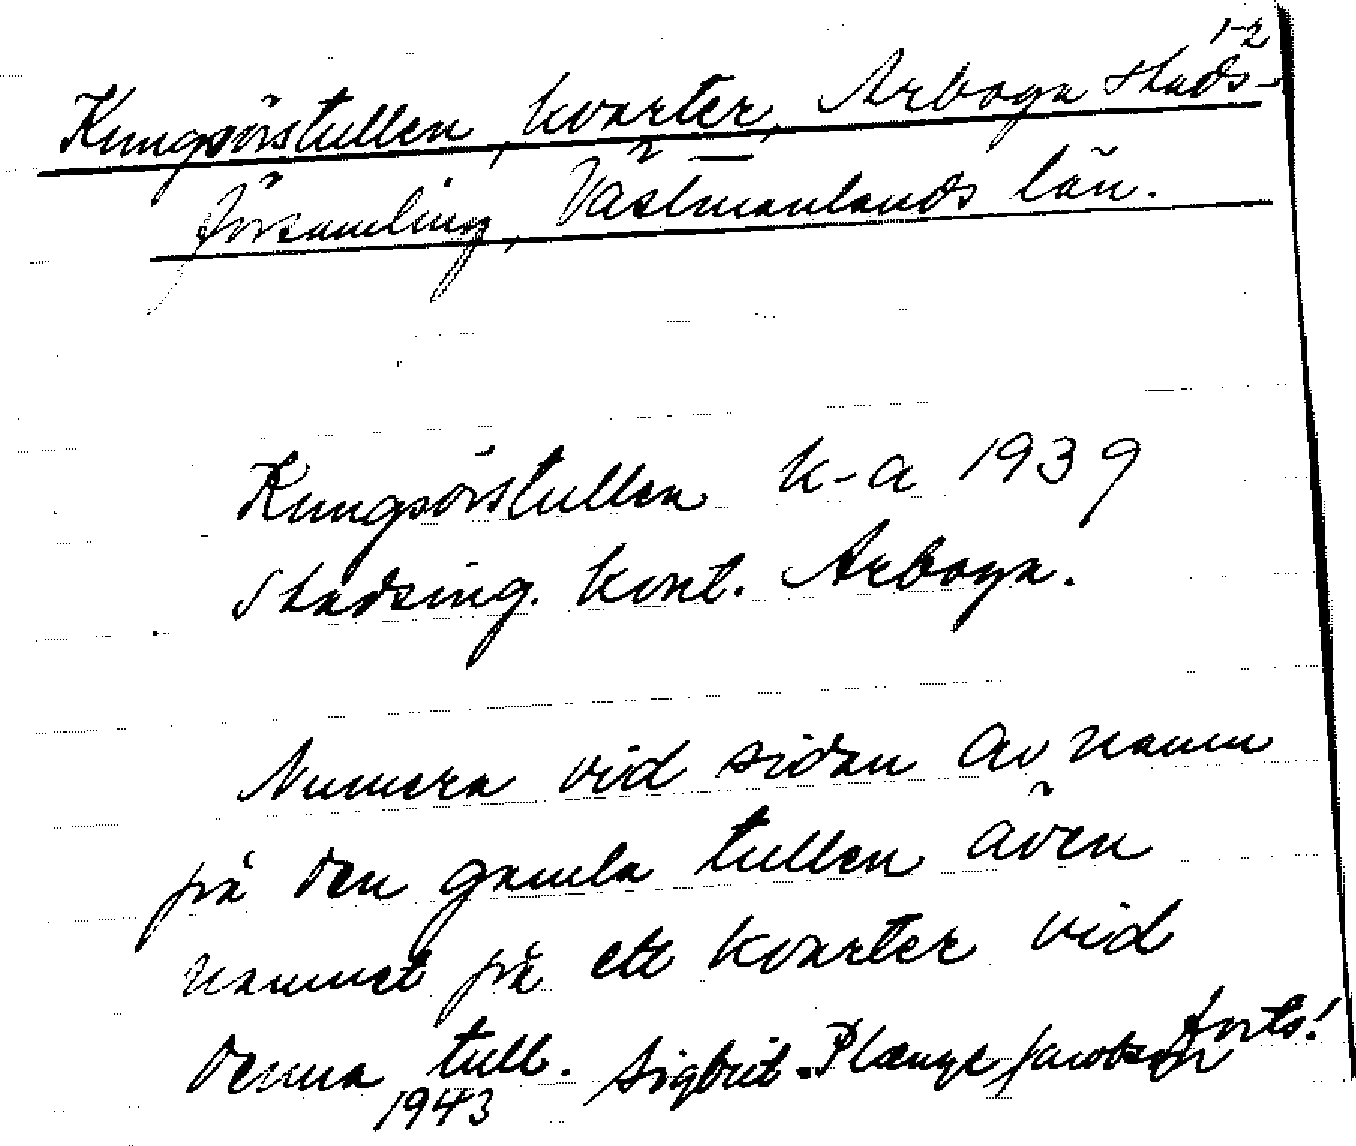 1-2
Kungsörstullen, kvarter, Arboga stads-
församling, Västmanlands län.
Kungsörstullen k-a 1939
Stadsing. kont. Arboga.
Numera vid sidan av namn
på den gamla tullen även
namnet på ett kvarter vid
denna tull. Sigbrit Plænge Jacobson forts!
1943